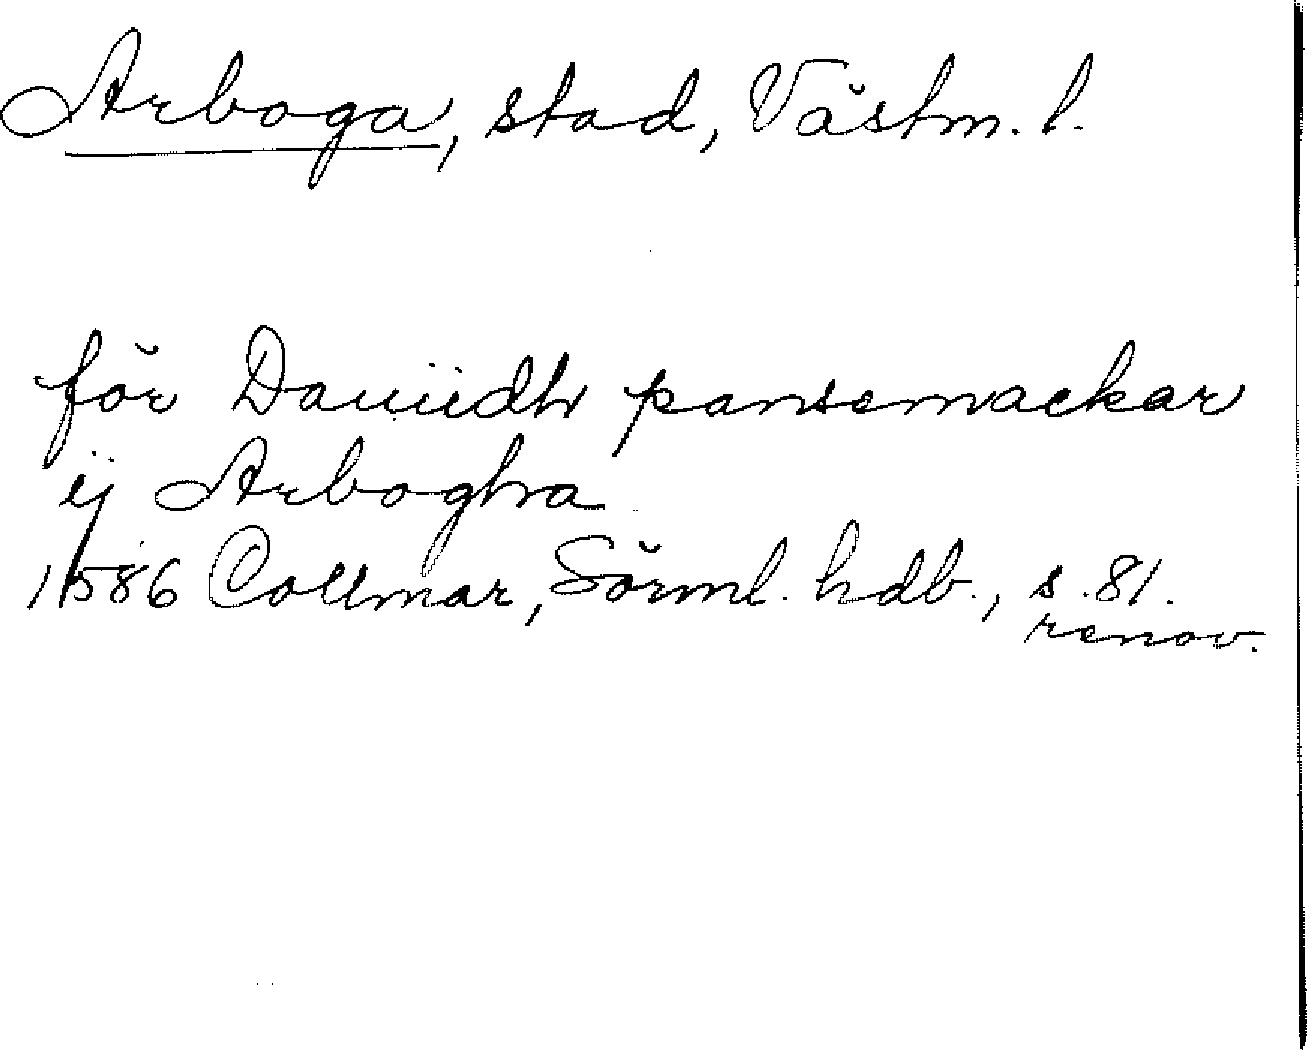 Arboga, stad, Västm. l.
för Dauiidh pansemackar
ij Arbogha
1586 Collmar, Sörml. hdb., s. 81.
renov.